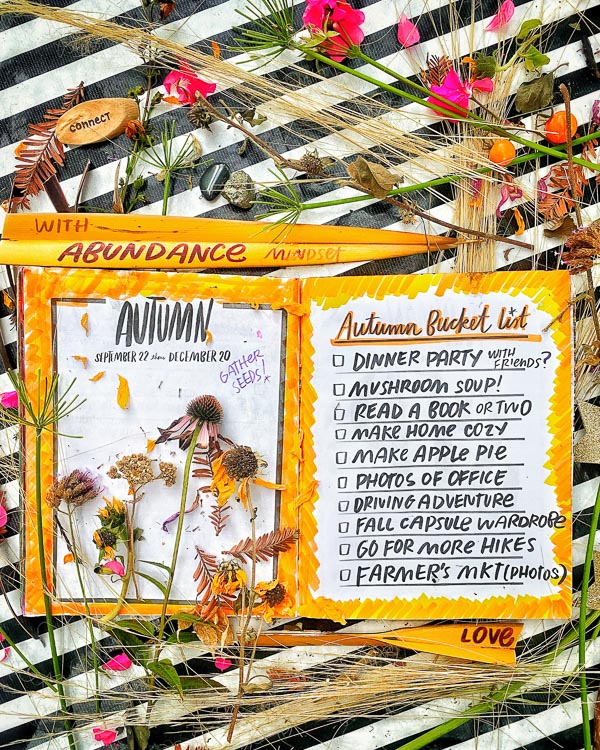 connect
WITH
ABUNDANCE Mindset
AUTUMN
SEPTEMBER 22 thru DECEMBER 20
GATHER
SEEDS!
Autumn Bucket list
DINNER PARTY WITH FRIENDS?
MUSHROOM SOUP!
READ A BOOK OR TWO
MAKE HOME COZY
MAKE APPLE PIE
PHOTOS OF OFFICE
DRIVING ADVENTURE
FALL CAPSULE WARDROBE
GO FOR MORE HIKES
FARMER'S MKT (PHOTOS)
LOVE